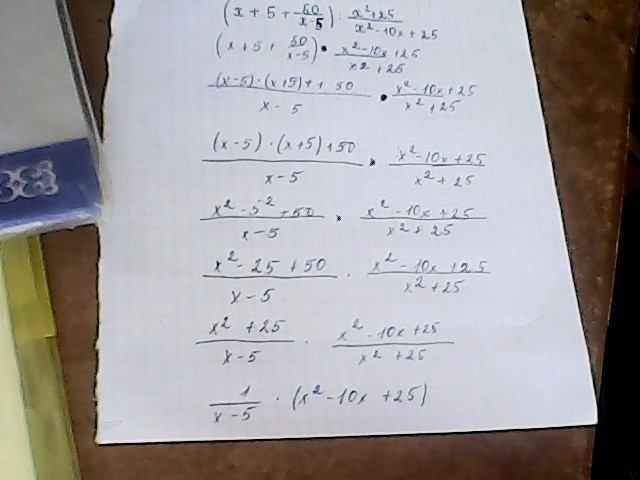 (x + 5 + 50/(x-5)) : (x²+25)/(x²-10x+25)
(x+5+ 50/(x-5)) • (x²-10x+25)/(x²+25)
((x-5)·(x+5)+1·50)/(x-5) • (x²-10x+25)/(x²+25)
((x-5)·(x+5)+50)/(x-5) • (x²-10x+25)/(x²+25)
(x²-5²+50)/(x-5) • (x²-10x+25)/(x²+25)
(x²-25+50)/(x-5) · (x²-10x+25)/(x²+25)
(x²+25)/(x-5) · (x²-10x+25)/(x²+25)
1/(x-5) · (x²-10x+25)